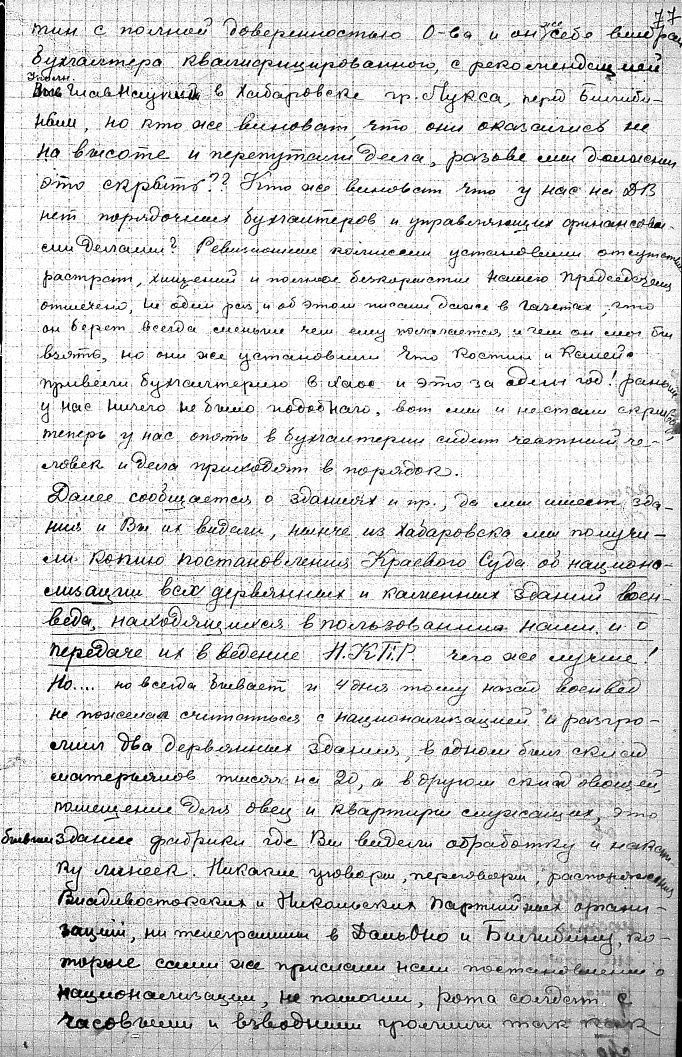 77
тин с полной доверенностью О-ва и он же себе выбрал
бухгалтера квалифицированного, с рекомендацией
Уполн. Главнауки в Хабаровске гр. Лукса, перед Билиби-
ным, но кто же виноват, что они оказались не
на высоте и перепутали дела, разве мы должны
это скрыть?? Кто же виноват что у нас на ДВ
нет порядочных бухгалтеров и управляющих финансовы-
ми делами? Ревизионные комиссии установили отсутствие
растрат, хищений и полное безкорыстие нашего Председателя
отмечено, не один раз, и об этом писали даже в газетах, что
он берет всегда меньше чем ему полагается и чем он мог бы
взять, но они же установили что Костин и
привели бухгалтерию в хаос и это за один год! раньше
у нас ничего не было подобнаго, вот мы и не стали скрывать,
теперь у нас опять в бухгалтерии сидит честный че-
ловек и дела приходят в порядок.
Далее сообщается о зданиях и пр., да мы имеем зда-
ния и Вы их видали, нынче из Хабаровска мы получи-
ли копию постановления Краевого Суда об национа-
лизации всех деревянных и каменных зданий воен-
веда, находящихся в пользовании нами и о
передаче их в ведение Н.К.П.Р. чего же лучше!
Но.... но всегда бывает и 4 дня тому назад военвед
не пожелал считаться с национализацией и разгро-
мил два деревянных здания, в одном был склад
материалов тысяч на 20, а в другом склад овощей,
помещение для овец и квартиры служащих, это
бывшее здание фабрики где Вы видели обработку и
ку линеек. Никакие уговоры, переговоры, распоряжения
Владивостокских и Никольских партийных органи-
заций, ни телеграммы в ДальОно и Билибину, ко-
торые сами же прислали нам постановление о
национализации, не помогли, рота солдат с
часовыми и взводными громили так как